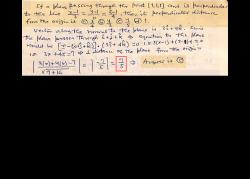 If a plane passing through the point (1,1,1) and is perpendicular
to the line (x-1)/3 = (y-1)/0 = (z-1)/4, then its perpendicular distance
from the origin is
Vector along the normal to the plane is 3î + 4k̂. Since
the plane passes through î+ĵ+k̂ ⇒ equation to the plane
would be [r̄ - (î+ĵ+k̂)].(3î+4k̂) = 0
i.e. 3x+4z=7 ⇒ distance of the plane from the origin =
|3(0)+4(0)-7| / √9+16 = |-7/5| = 7/5 ⇒ Answer is